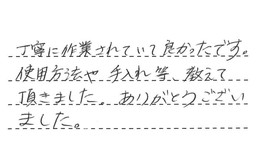 丁寧に作業されていて良かったです。
使用方法や手入れ等、教えて
頂きました。ありがとうござい
ました。